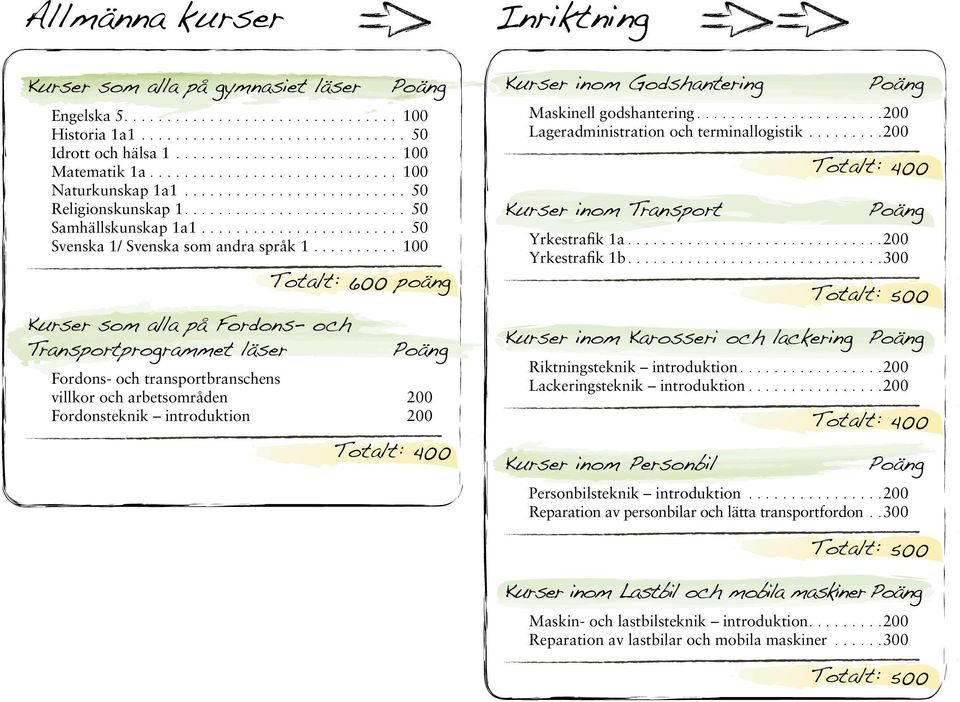 Allmänna kurser
Kurser som alla på gymnasiet läser Poäng
Engelska 5. . . . . . . . . . . . . . . . . . . . . . . . . . . . . . . . 100
Historia 1a1 . . . . . . . . . . . . . . . . . . . . . . . . . . . . . . . 50
Idrott och hälsa 1 . . . . . . . . . . . . . . . . . . . . . . . . . . 100
Matematik 1a . . . . . . . . . . . . . . . . . . . . . . . . . . . . . 100
Naturkunskap 1a1 . . . . . . . . . . . . . . . . . . . . . . . . . . 50
Religionskunskap 1. . . . . . . . . . . . . . . . . . . . . . . . . . 50
Samhällskunskap 1a1 . . . . . . . . . . . . . . . . . . . . . . . . 50
Svenska 1/ Svenska som andra språk 1 . . . . . . . . . . 100
Totalt: 600 poäng
Kurser som alla på Fordons- och
Transportprogrammet läser Poäng
Fordons- och transportbranschens
villkor och arbetsområden 200
Fordonsteknik – introduktion 200
Totalt: 400
Inriktning
Kurser inom Godshantering Poäng
Maskinell godshantering . . . . . . . . . . . . . . . . . . . . . .200
Lageradministration och terminallogistik . . . . . . . . .200
Totalt: 400
Kurser inom Transport Poäng
Yrkestrafik 1a . . . . . . . . . . . . . . . . . . . . . . . . . . . . . .200
Yrkestrafik 1b . . . . . . . . . . . . . . . . . . . . . . . . . . . . . .300
Totalt: 500
Kurser inom Karosseri och lackering Poäng
Riktningsteknik – introduktion . . . . . . . . . . . . . . . . .200
Lackeringsteknik – introduktion . . . . . . . . . . . . . . . .200
Totalt: 400
Kurser inom Personbil Poäng
Personbilsteknik – introduktion . . . . . . . . . . . . . . . .200
Reparation av personbilar och lätta transportfordon . .300
Totalt: 500
Kurser inom Lastbil och mobila maskiner Poäng
Maskin- och lastbilsteknik – introduktion. . . . . . . . .200
Reparation av lastbilar och mobila maskiner . . . . . .300
Totalt: 500